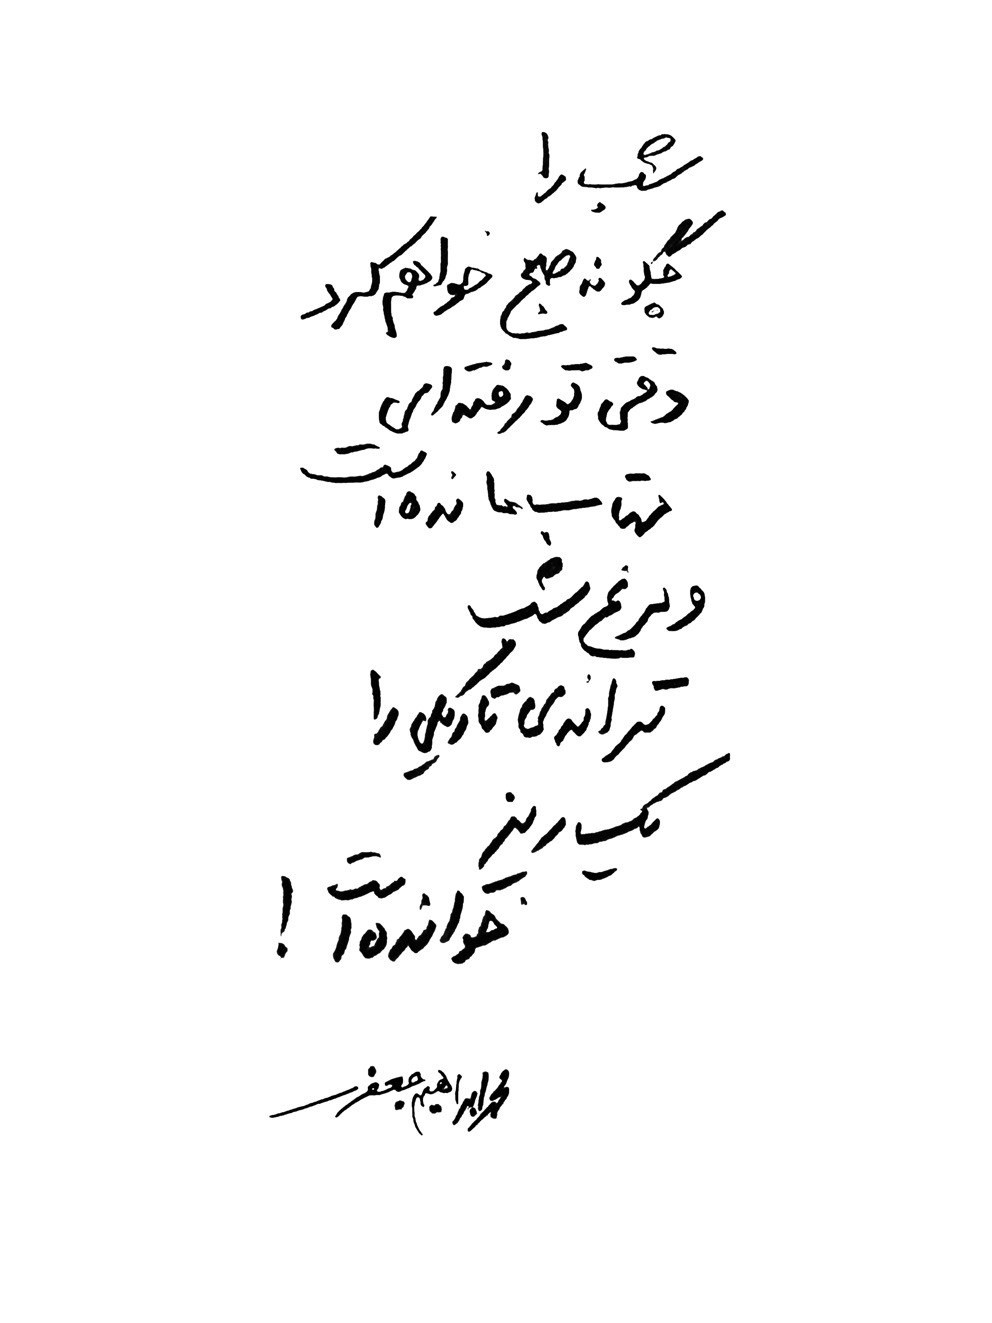 شب را
چگونه صبح خواهم کرد
وقتی تو رفته‌ای
مهتاب مانده است
و مرغ شب
ترانه‌ی تاریکی را
یک ریز
خوانده است !
محمد ابراهیم جعفری